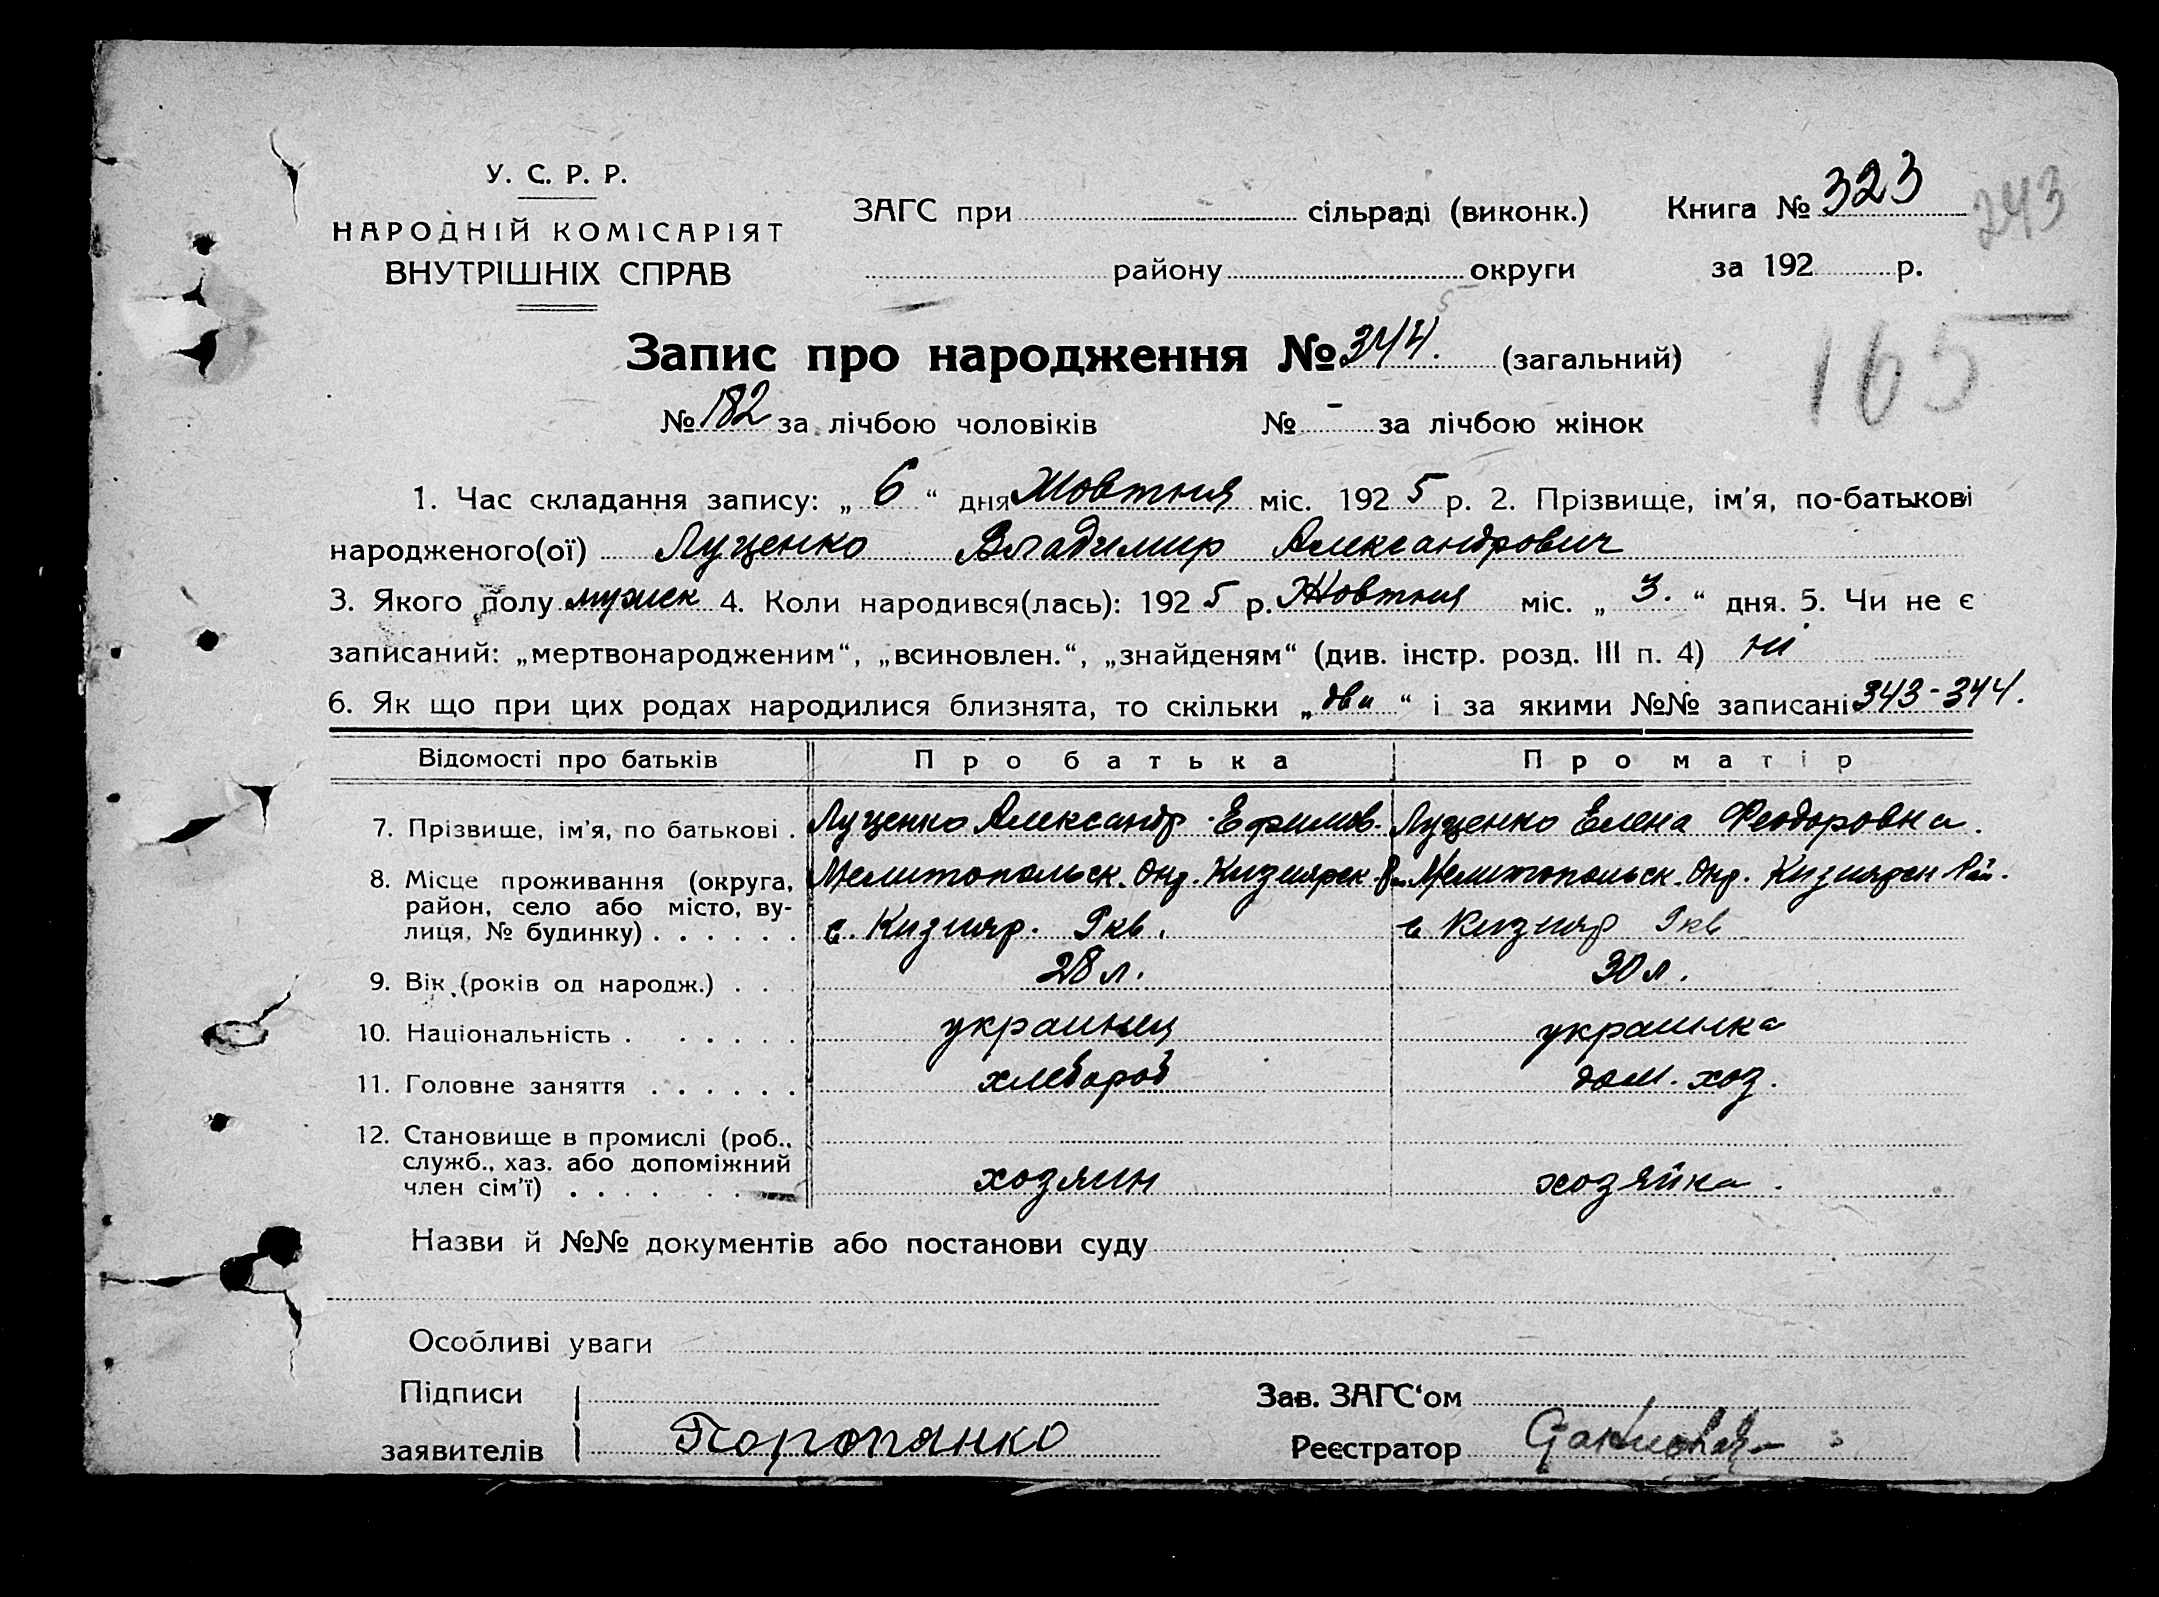 У. С. Р. Р.
НАРОДНІЙ КОМІСАРІЯТ
ВНУТРІШНІХ СПРАВ
ЗАГС при сільраді (виконк.)
району округи
Книга № 323
243
за 192 р.
Запис про народження № 344. (загальний)
165
№ 182 за лічбою чоловіків № - за лічбою жінок
1. Час складання запису: „ 6 “ дня Жовтня міс. 192 5 р. 2. Прізвище, ім'я, по-батькові
народженого(ої) Луценко Владимир Александрович
3. Якого полу мужск 4. Коли народився(лась): 192 5 р. Жовтня міс. „ 3. “ дня. 5. Чи не є
записаний: „мертвонародженим“, „всиновлен.“, „знайденям“ (див. інстр. розд. III п. 4) ні
6. Як що при цих родах народилися близнята, то скільки „ два “ і за якими №№ записані 343-344.
Відомості про батьків Про батька Про матір
7. Прізвище, ім'я, по батькові . Луценко Александр Ефимов. Луценко Елена Феодоровна.
8. Місце проживання (округа, район, село або місто, вулиця, № будинку) . . . . . . Мелитопольск. Окр. Кизиярск. Мелитопольск. Окр. Кизиярск Рай.
с. Кизияр. с Кизияр
9. Вік (років од народж.) . . . 28 л. 30 л.
10. Національність . . . . . . украинец украинка
11. Головне заняття . . . . . . хлебороб дом. хоз.
12. Становище в промислі (роб., служб., хаз. або допоміжний член сім'ї) . . . . . . хозяин хозяйка.
Назви й №№ документів або постанови суду
Особливі уваги
Підписи
заявителів
Зав. ЗАГС‘ом
Реєстратор